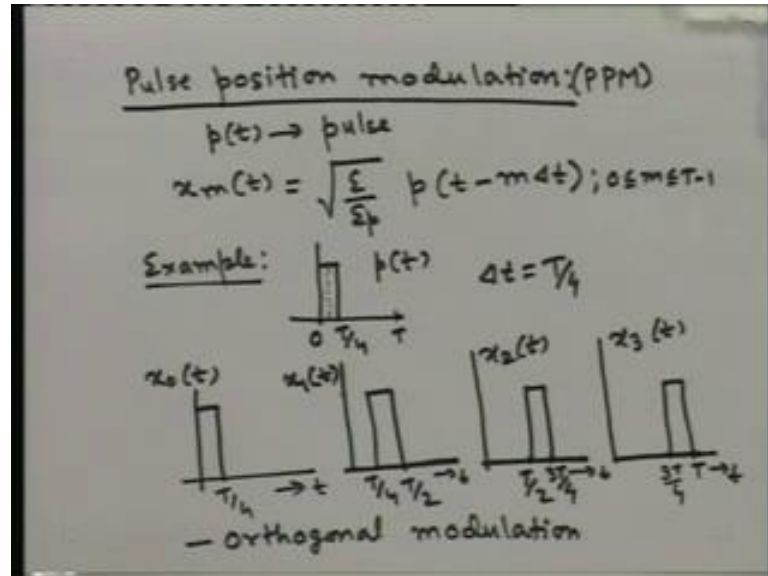 Pulse position modulation:(PPM)
p(t) → pulse
xm(t) = √(Ɛ/Ɛp) p(t-mΔt) ; 0≤m≤T-1
Example: p(t) Δt = T/4
0 T/4 T
x0(t) x1(t) x2(t) x3(t)
T/4 → t T/4 T/2 → t T/2 3T/4 → t 3T/4 T → t
- orthogonal modulation